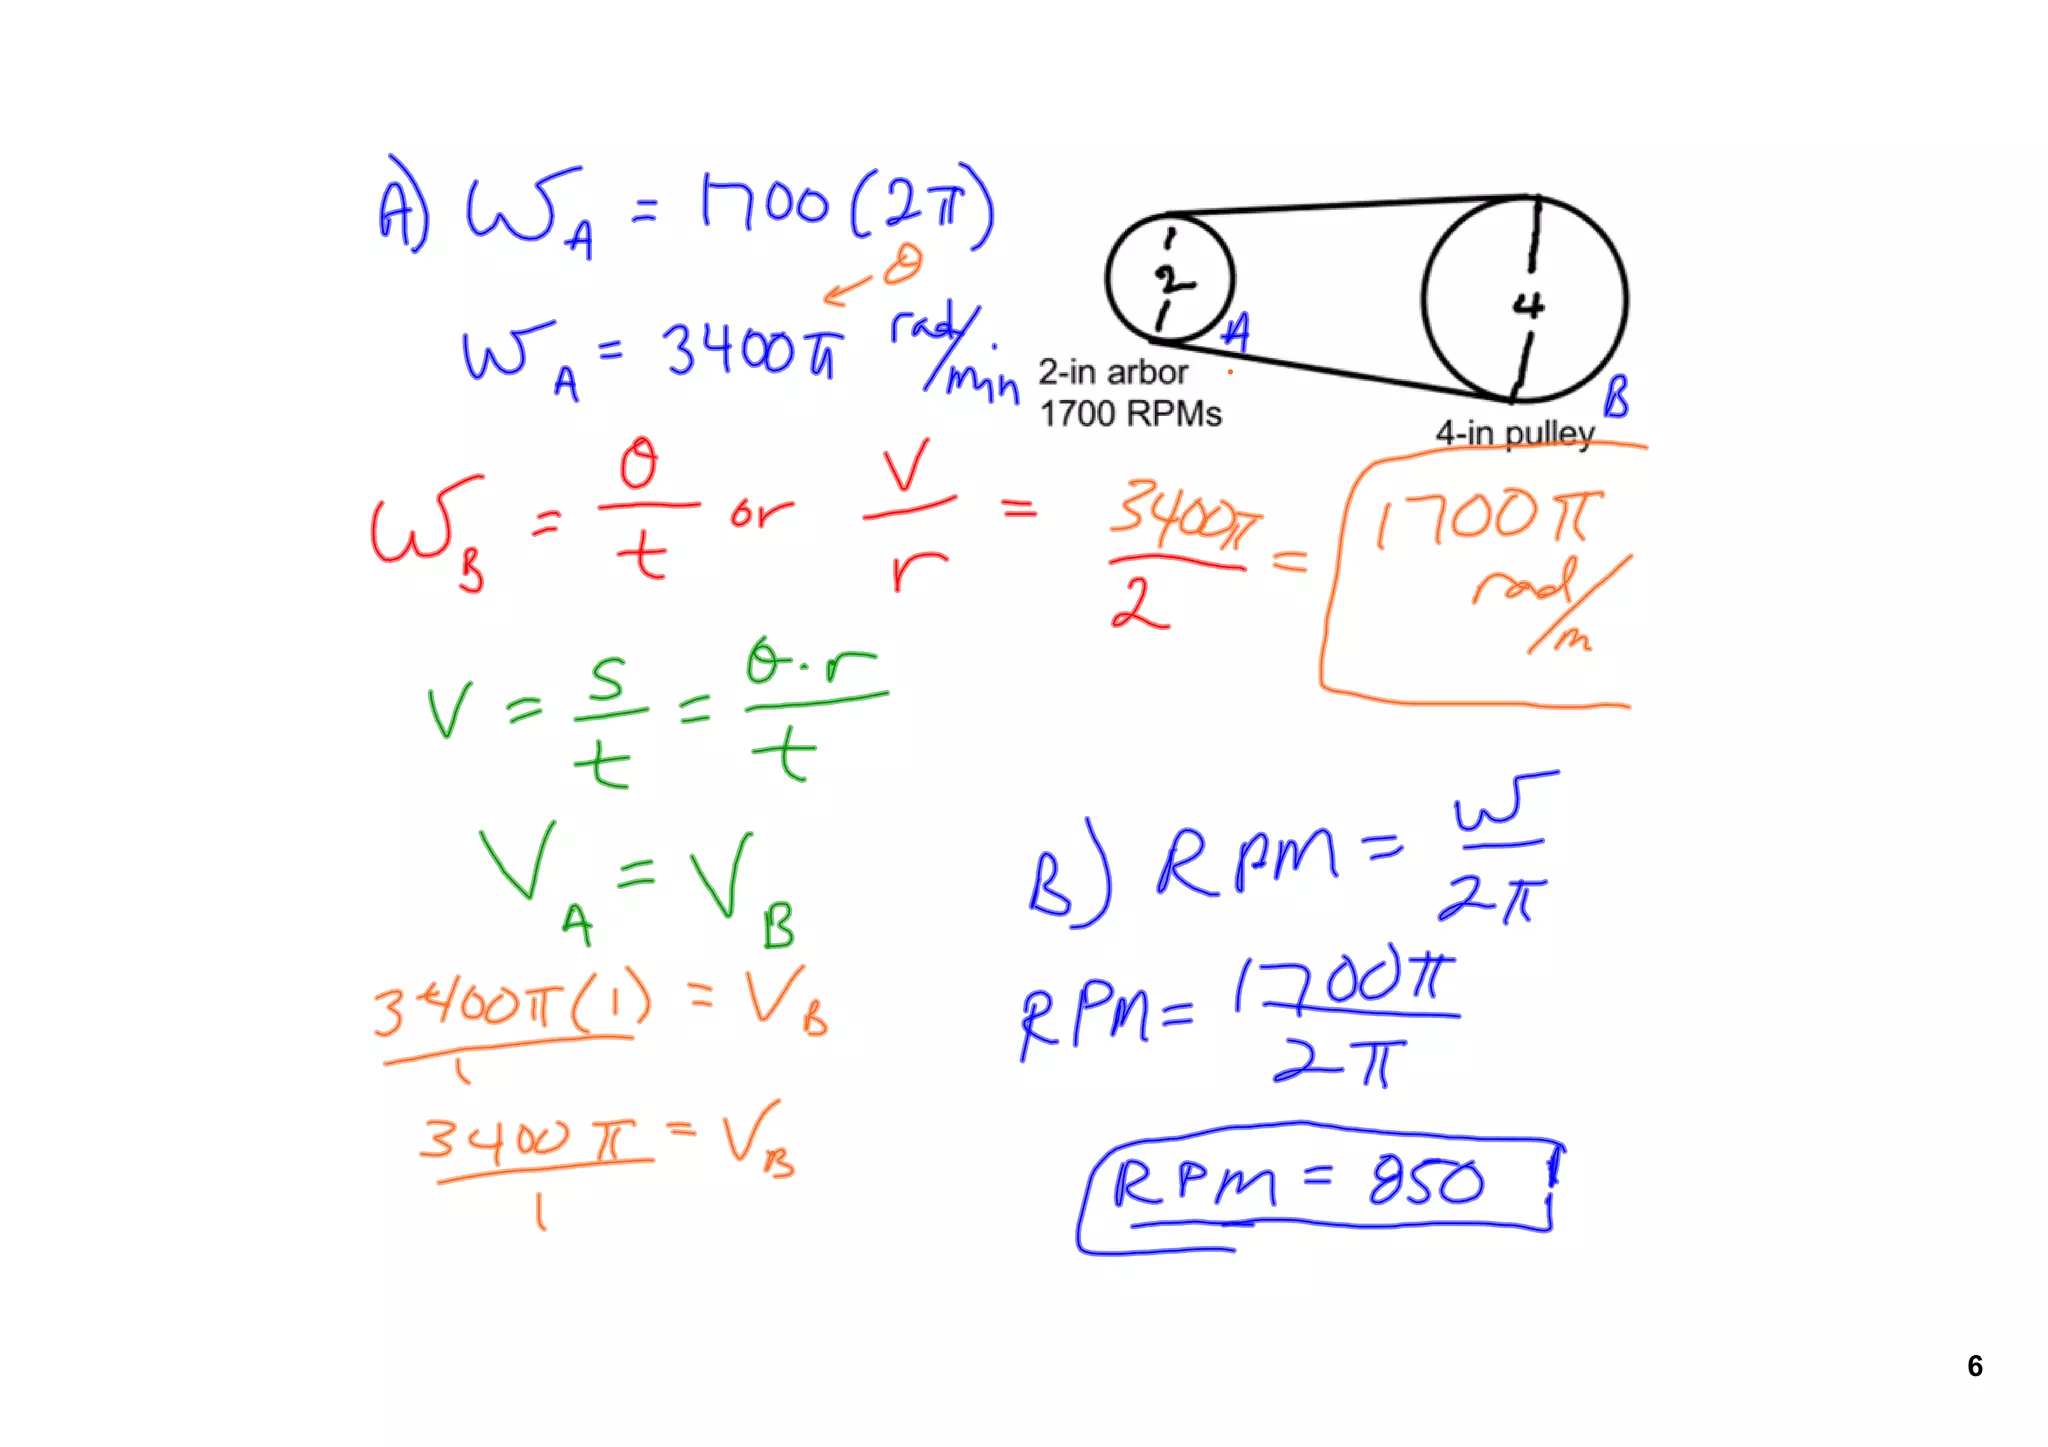 A) ω_A = 1700(2π)
θ
ω_A = 3400π rad/min
2
4
A
B
2-in arbor
1700 RPMs
4-in pulley
ω_B = θ/t or v/r = 3400π/2 = 1700π rad/m
V = s/t = θ·r/t
V_A = V_B
3400π(1)/1 = V_B
3400π/1 = V_B
B) RPM = ω/2π
RPM = 1700π/2π
RPM = 850
6